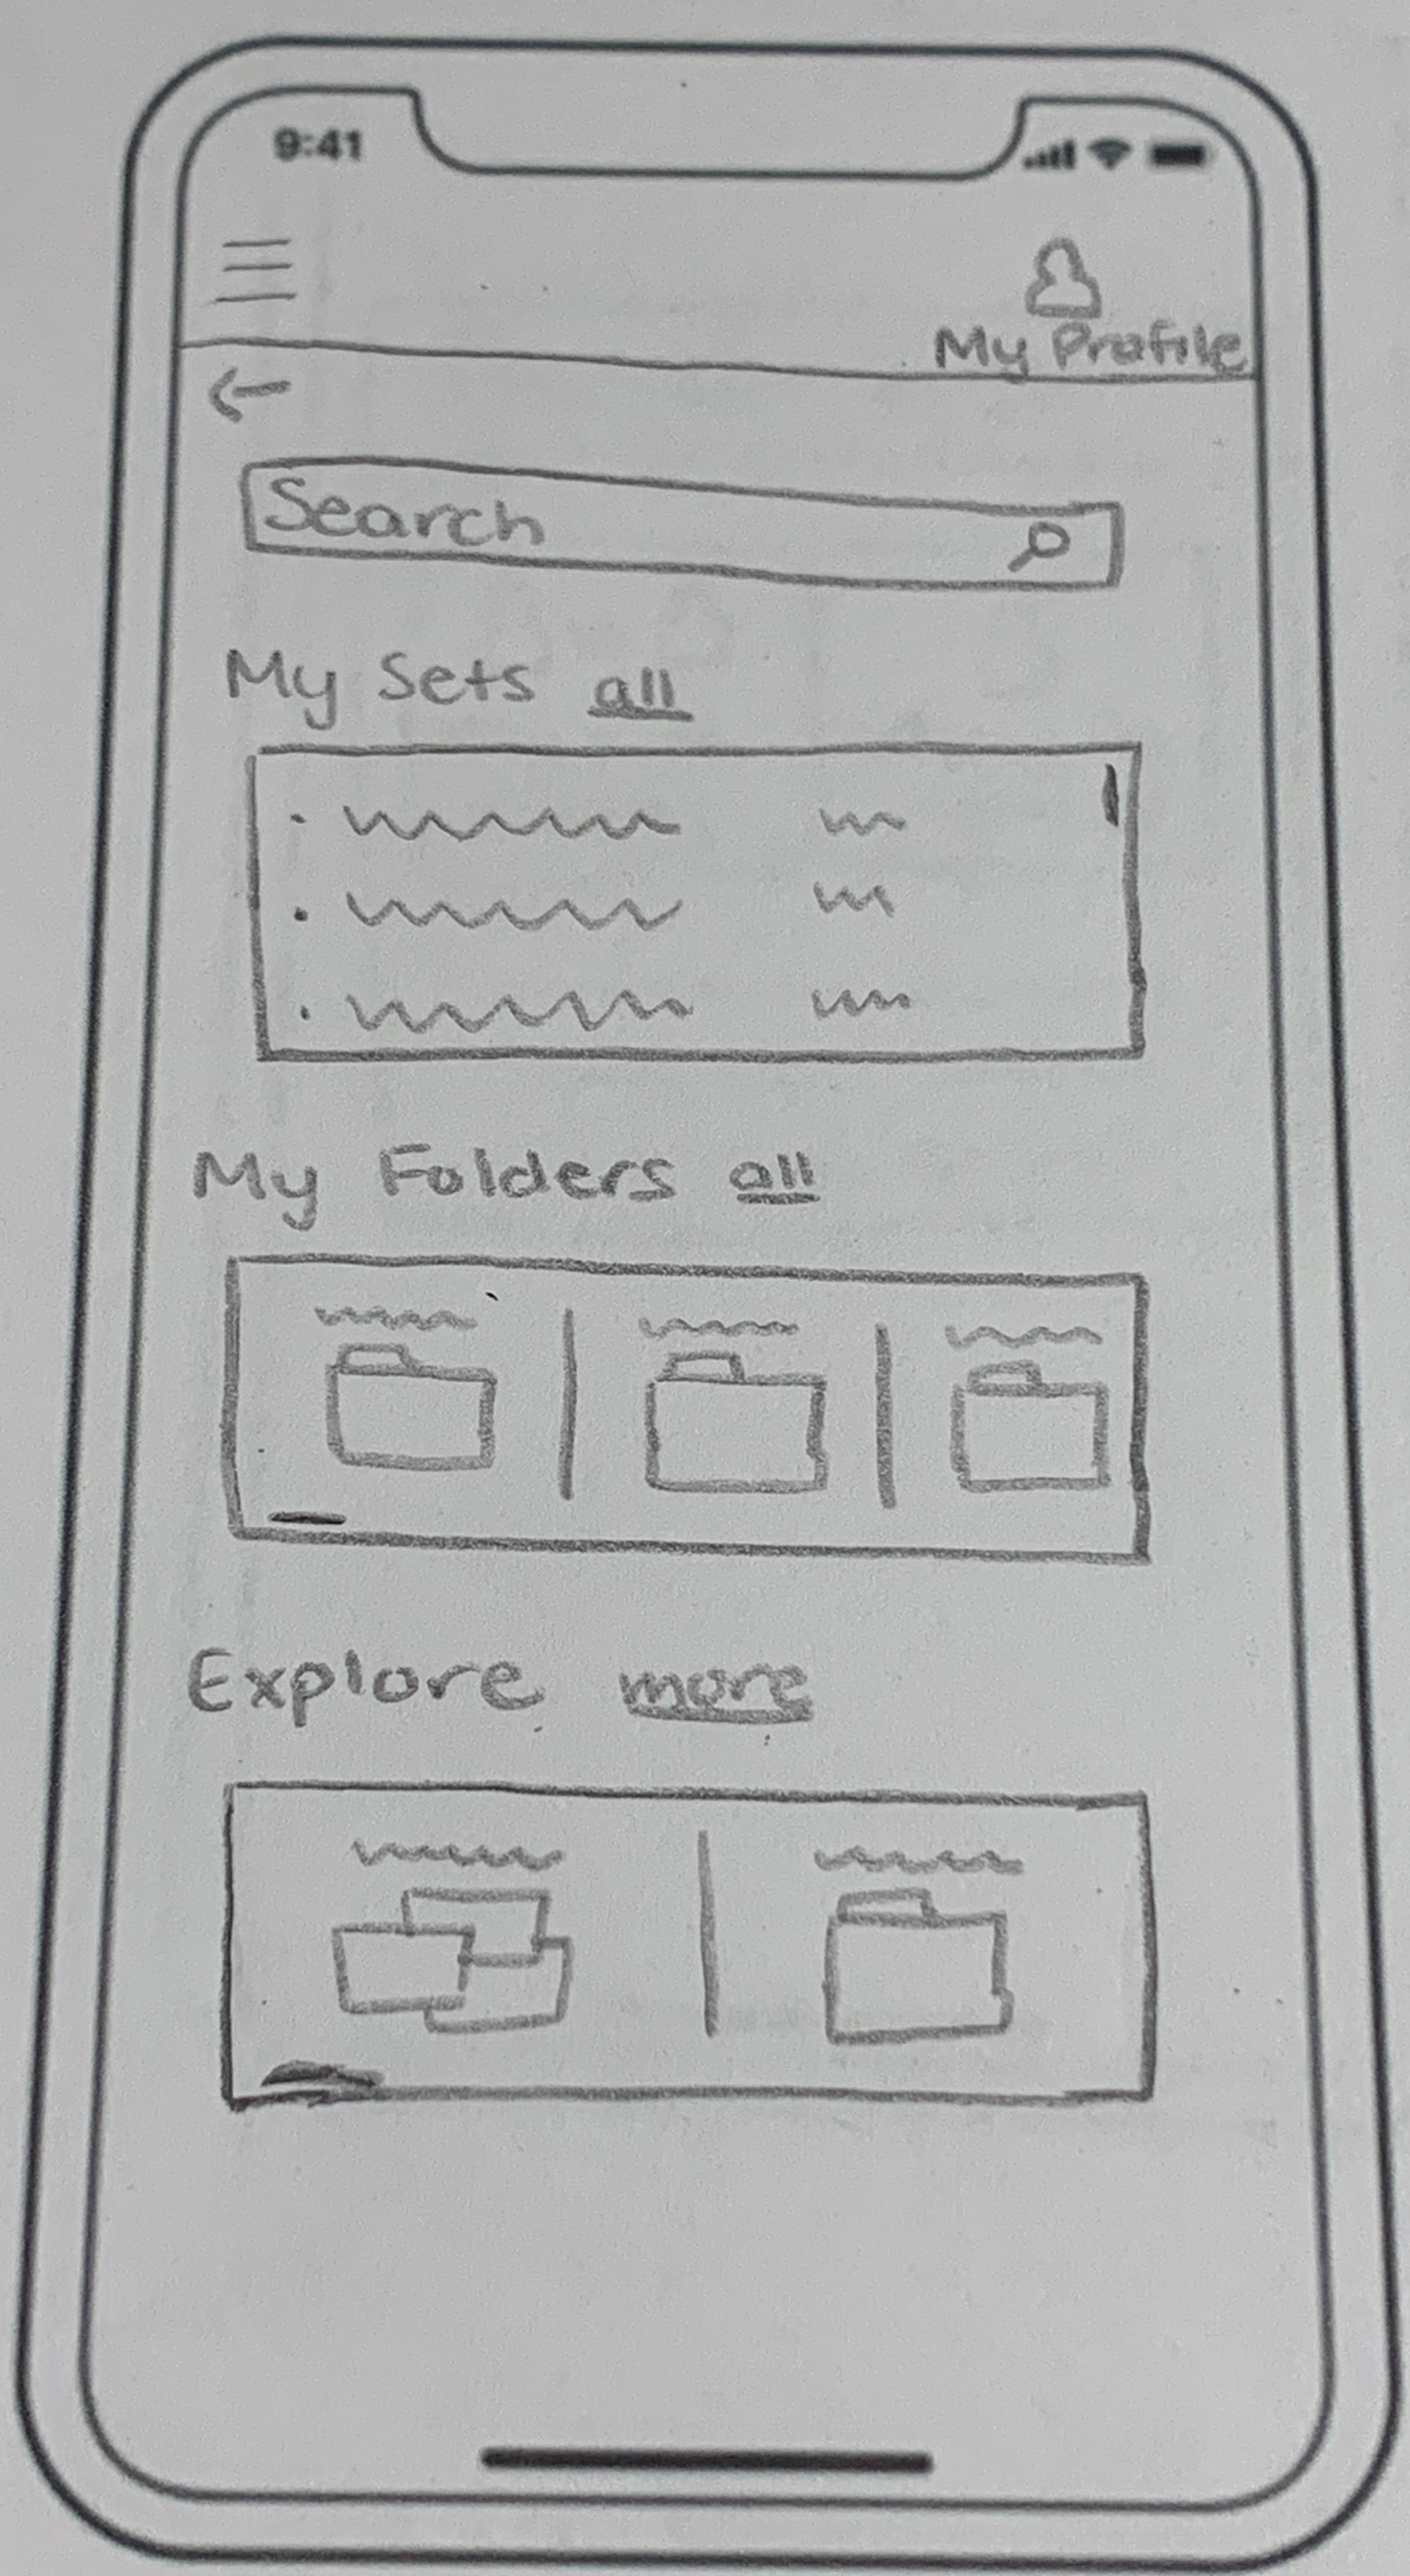 9:41
My Profile
Search
My Sets all
My Folders all
Explore more